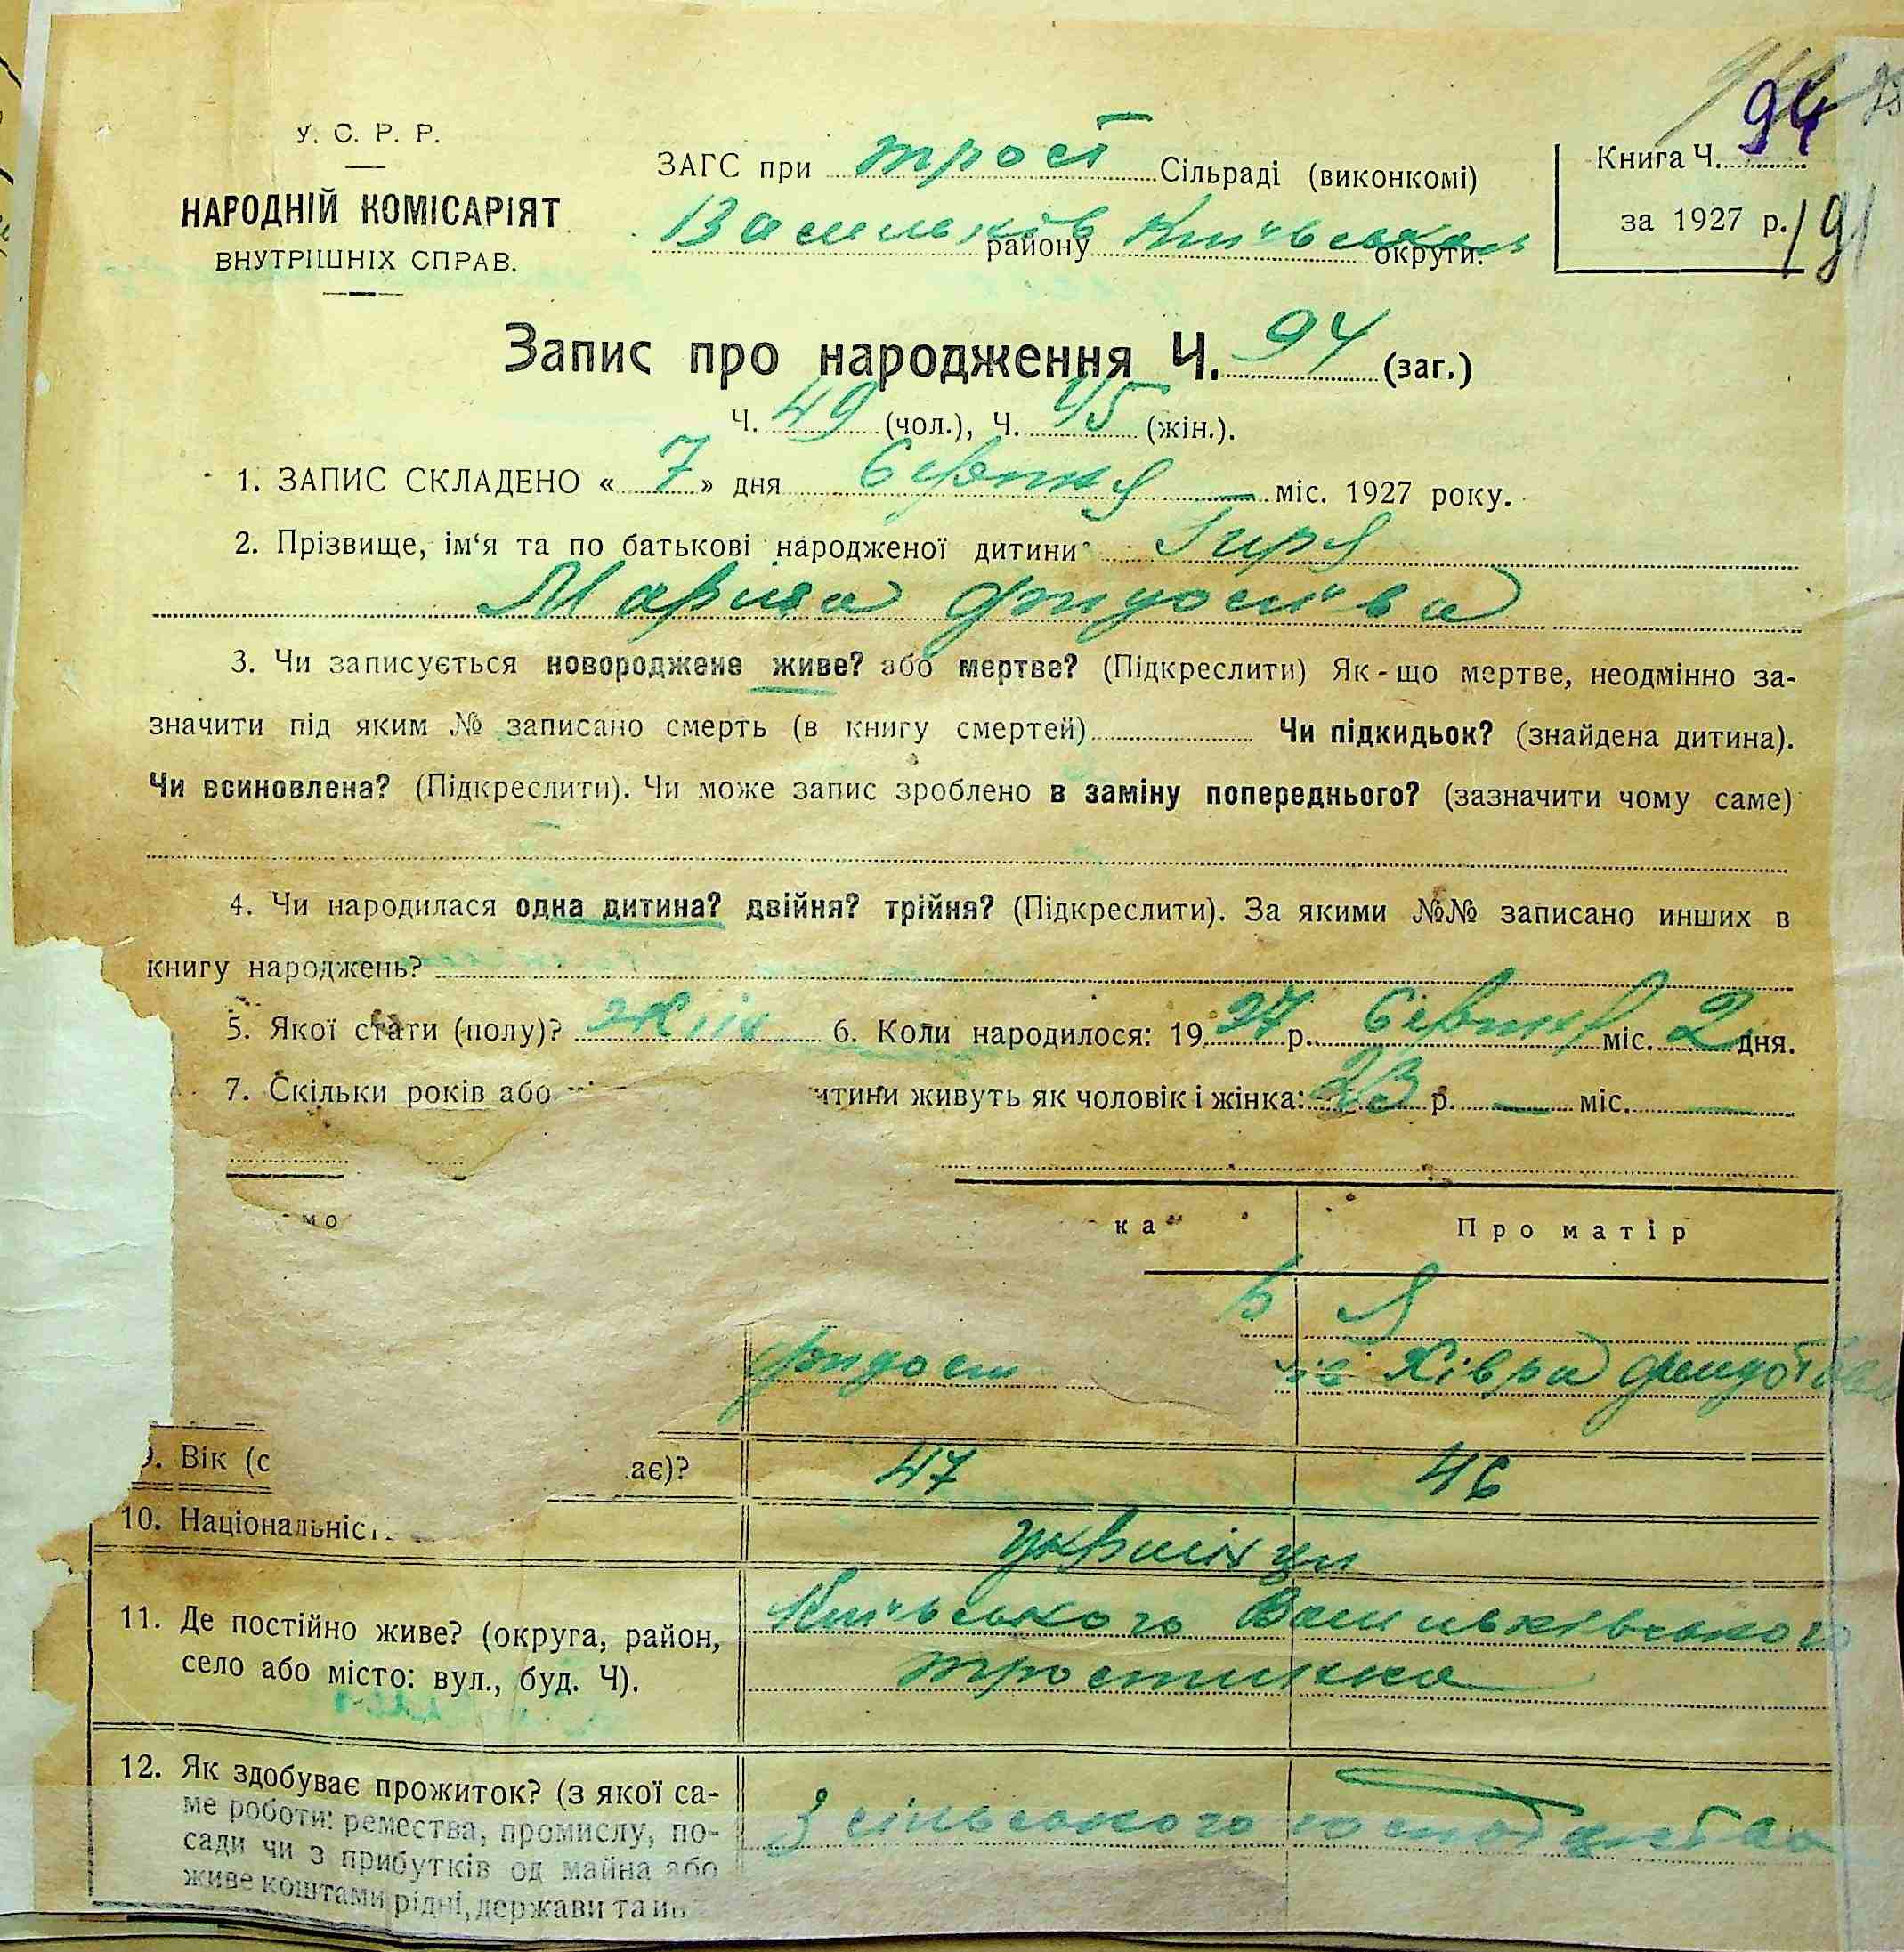 У. С. Р. Р.
НАРОДНІЙ КОМІСАРІЯТ
ВНУТРІШНІХ СПРАВ.
ЗАГС при трост Сільраді (виконкомі)
Васильків району Київської округи.
Книга Ч. 94
за 1927 р. 191
Запис про народження Ч. 94 (заг.)
Ч. 49 (чол.), Ч. 45 (жін.).
1. ЗАПИС СКЛАДЕНО « 7 » дня Серпня міс. 1927 року.
2. Прізвище, ім‘я та по батькові народженої дитини Гиря
Мария Фидосіівна
3. Чи записується новороджене живе? або мертве? (Підкреслити) Як-що мертве, неодмінно за-
значити під яким № записано смерть (в книгу смертей) Чи підкидьок? (знайдена дитина).
Чи всиновлена? (Підкреслити). Чи може запис зроблено в заміну попереднього? (зазначити чому саме)
4. Чи народилася одна дитина? двійня? трійня? (Підкреслити). За якими №№ записано инших в
книгу народжень?
5. Якої стати (полу)? жін 6. Коли народилося: 1927 р. Серпня міс. 2 дня.
7. Скільки років або итини живуть як чоловік і жінка: 23 р. — міс.
мо ка Про матір
Я
Фидоси Хівра Федотова
9. Вік (с ає)? 47 46
10. Національніс українци
11. Де постійно живе? (округа, район,
село або місто: вул., буд. Ч).
Київського Васильківського
тростинка
12. Як здобуває прожиток? (з якої са-
ме роботи: ремества, промислу, по-
сади чи з прибутків од майна або
живе коштами рідні, держави та ин.
З сільського господарства